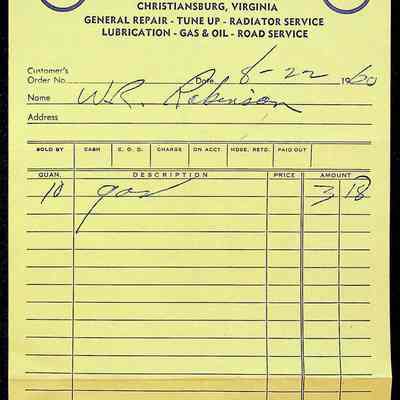 CHRISTIANSBURG, VIRGINIA
GENERAL REPAIR - TUNE UP - RADIATOR SERVICE
LUBRICATION - GAS & OIL - ROAD SERVICE
Customer's
Order No. Date 8-22 1960
Name W.R. Robinson
Address
SOLD BY CASH C.O.D. CHARGE ON ACCT. MDSE. RETD. PAID OUT
QUAN. DESCRIPTION PRICE AMOUNT
10 gas 3 18